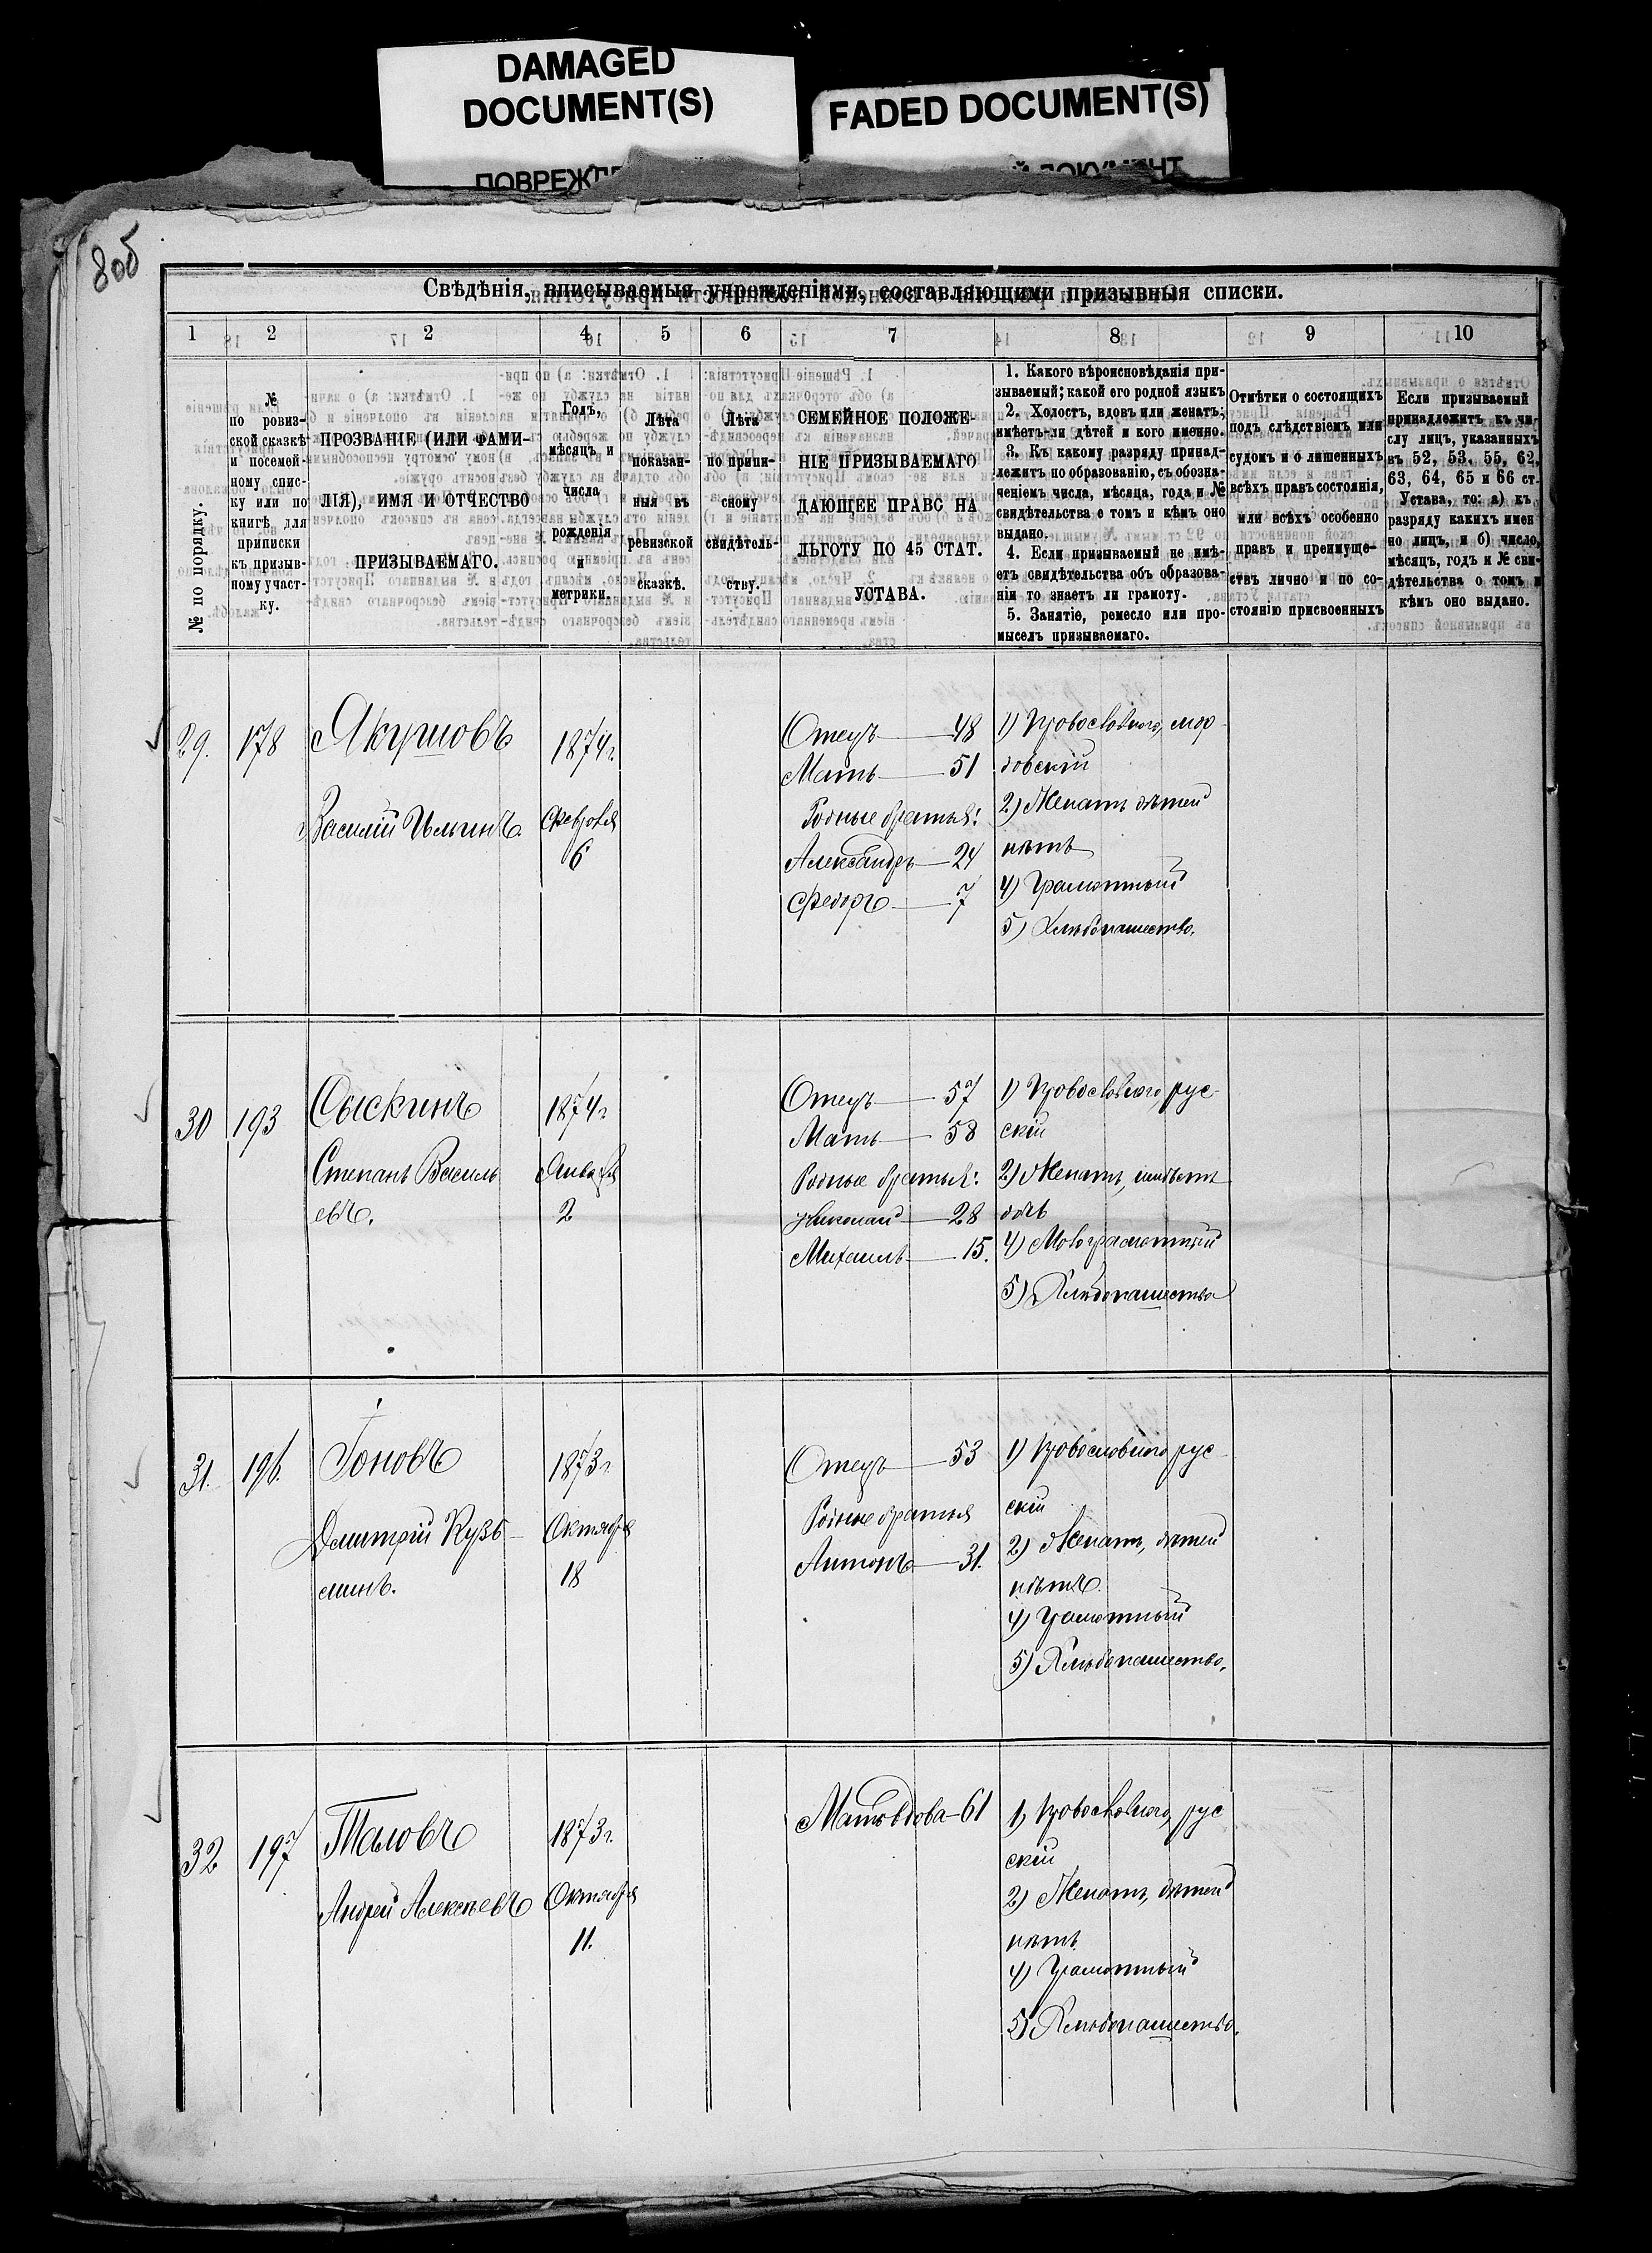 DAMAGED
DOCUMENT(S)
FADED DOCUMENT(S)
8об
Свѣдѣнія, вписываемыя учрежденіями, составляющими призывныя списки.
1 2 2 4 5 6 7 8 9 10
№ по порядку.
№
по ровиз-
ской сказкѣ
и посемей-
ному спис-
ку или по
книгѣ для
приписки
къ призыв-
ному участ-
ку.
ПРОЗВАНІЕ (ИЛИ ФАМИ-
ЛІЯ), ИМЯ И ОТЧЕСТВО
ПРИЗЫВАЕМАГО.
Годъ,
мѣсяцъ и
числа
рожденія
и
метрики.
Лѣта
показан-
ныя въ
ревизской
сказкѣ.
Лѣта
по припи-
сному
свидѣтель-
ству.
СЕМЕЙНОЕ ПОЛОЖЕ-
НІЕ ПРИЗЫВАЕМАГО
ДАЮЩЕЕ ПРАВО НА
ЛЬГОТУ ПО 45 СТАТ.
УСТАВА.
1. Какого вѣроисповѣданія при-
зываемый; какой его родной языкъ
2. Холостъ, вдовъ или женатъ;
имѣетъ-ли дѣтей и кого именно.
3. Къ какому разряду принад-
лежитъ по образованію, съ обозна-
ченіемъ числа, мѣсяца, года и №
свидѣтельства о томъ и кѣмъ оно
выдано.
4. Если призываемый не имѣ-
етъ свидѣтельства объ образова-
ніи то знаетъ ли грамоту.
5. Занятіе, ремесло или про-
мыселъ призываемаго.
Отмѣтки о состоящихъ
подъ слѣдствіемъ или
судомъ и о лишенныхъ
всѣхъ правъ состоянія,
или всѣхъ особенно
правъ и преимуще-
ствъ лично и по со-
стоянію присвоенныхъ
Если призываемый
принадлежитъ къ чи-
слу лицъ, указанныхъ
въ 52, 53, 55, 62,
63, 64, 65 и 66 ст.
Устава, то: а) къ
разряду какихъ имен-
но лицъ, и б) число,
мѣсяцъ, годъ и № сви-
дѣтельства о томъ и
кѣмъ оно выдано.
29. 178 Якушовъ
Василій Ильинъ.
1874г.
Февраля
6
Отецъ 48
Мать 51
Родные братья:
Александръ 24
Федоръ 7
1) Православнаго, мор-
довскій
2) Женатъ дѣтей
нѣтъ
4) Грамотный
5) Хлѣбопашество.
30 193 Сыскинъ
Степанъ Василь
евъ.
1874г
Января
2
Отецъ 57
Мать 58
Родные братья:
Николай 28
Михаилъ 15.
1) Православнаго, рус-
скій
2) Женатъ, имѣетъ
дочь
4) Малограмотный
5) Хлѣбопашество
31. 196. Іоновъ
Дмитрій Кузь-
минъ.
1873г.
Октября
18
Отецъ 53
Родные братья
Антонъ 31.
1) Православнаго рус-
скій
2) Женатъ, дѣтей
нѣтъ.
4) Грамотный
5) Хлѣбопашество.
32 197 Таловъ
Андрей Алексѣевъ
1873г.
Октября
11.
Мать вдова - 61
1) Православнаго, рус
скій
2) Женатъ, дѣтей
нѣтъ
4) Грамотный
5) Хлѣбопашество.